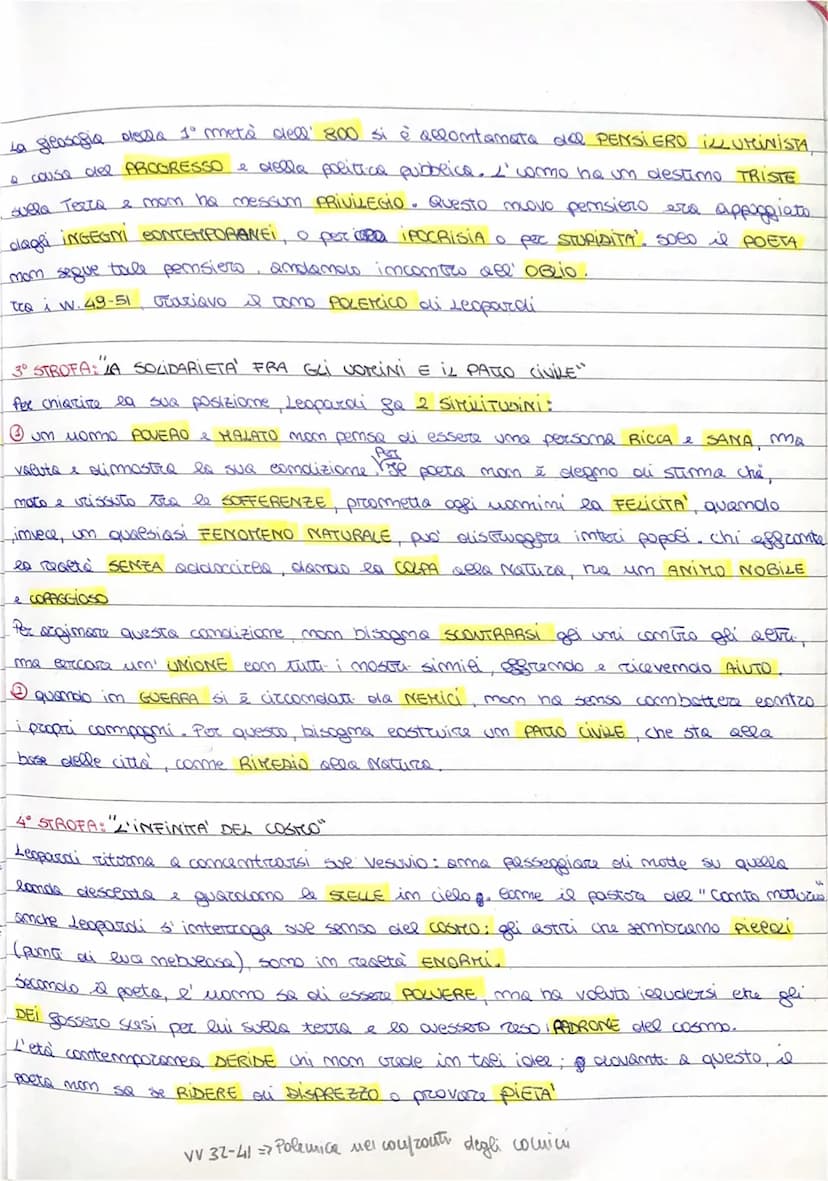 La filosofia della 1° metà dell' 800 si è allontanata dal PENSIERO ILLUMINISTA,
a causa del PROGRESSO e della politica pubblica. L'uomo ha un destino TRISTE
sulla Terra e non ha nessun PRIVILEGIO. Questo nuovo pensiero era appoggiato
dagli INGEGNI CONTEMPORANEI, o per IPOCRISIA o per STUPIDITA'. Solo il POETA
non segue tale pensiero, andando incontro all' OBLIO.
Tra i vv. 49-51, troviavo il tono POLEMICO di Leopardi
3° STROFA: "LA SOLIDARIETA' FRA GLI UOMINI E IL PATTO CIVILE"
Per chiarire la sua posizione, Leopardi fa 2 SIMILITUDINI:
① un uomo POVERO e MALATO non pensa di essere una persona RICCA e SANA, ma
valuta e dimostra la sua condizione. Per il poeta non è degno di stima chi,
nato e vissuto tra le SOFFERENZE, prometta agli uomini la FELICITA', quando
invece, un qualsiasi FENOMENO NATURALE, può distruggere interi popoli. Chi affronta
la realtà SENZA addolcirla, dando la COLPA alla Natura, ha un ANIMO NOBILE
e CORAGGIOSO
Per arginare questa condizione, non bisogna SCONTRARSI gli uni contro gli altri,
ma cercare un' UNIONE con tutti i nostri simili, offrendo e ricevendo AIUTO.
② quando in GUERRA si è circondati da NEMICI, non ha senso combattere contro
i propri compagni. Per questo, bisogna costruire un PATTO CIVILE, che sta alla
base delle città, come RIMEDIO alla Natura.
4° STROFA: "L'INFINITA' DEL COSMO"
Leopardi ritorna a concentrarsi sul Vesuvio: ama passeggiare di notte su quella
landa desolata e guardano le STELLE in cielo. Come il pastore del "Canto notturno"
anche Leopardi s'interroga sul senso del COSMO: gli astri che sembrano PICCOLI
(punti di luce nebulosa), sono in realtà ENORMI.
Secondo il poeta, l'uomo sa di essere POLVERE, ma ha voluto illudersi che gli
DEI fossero scesi per lui sulla terra e lo avessero reso PADRONE del cosmo.
L'età contemporanea DERIDE chi non crede in tali idee; davanti a questo, il
poeta non sa se RIDERE di DISPREZZO o provare PIETA'
vv 32-41 => Polemica nei confronti degli uomini